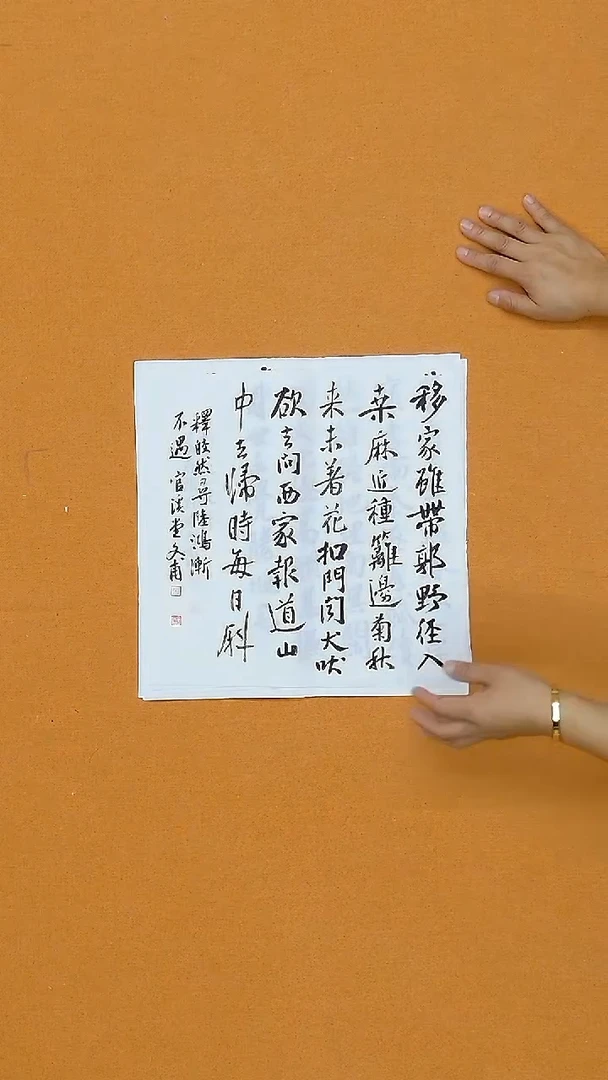 移家雖帶郭野徑入
桒麻近種籬邊菊秋
来未著花扣門犬吠
欲去问西家報道山
中去歸時每日斜
釋皎然尋陸鴻漸
不遇